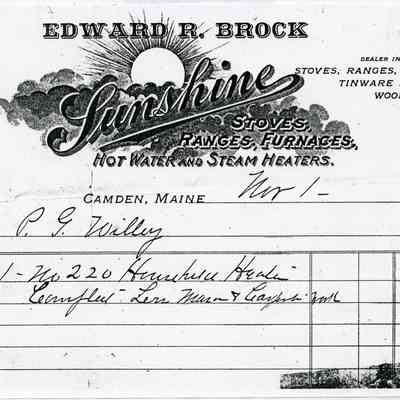 EDWARD R. BROCK
DEALER IN
STOVES, RANGES,
TINWARE
WOO
Sunshine
STOVES,
RANGES, FURNACES,
HOT WATER AND STEAM HEATERS.
CAMDEN, MAINE Nov 1-
P. G. Willey
1- No 220 Household Heater
Complete Less Mason & Carpenter work